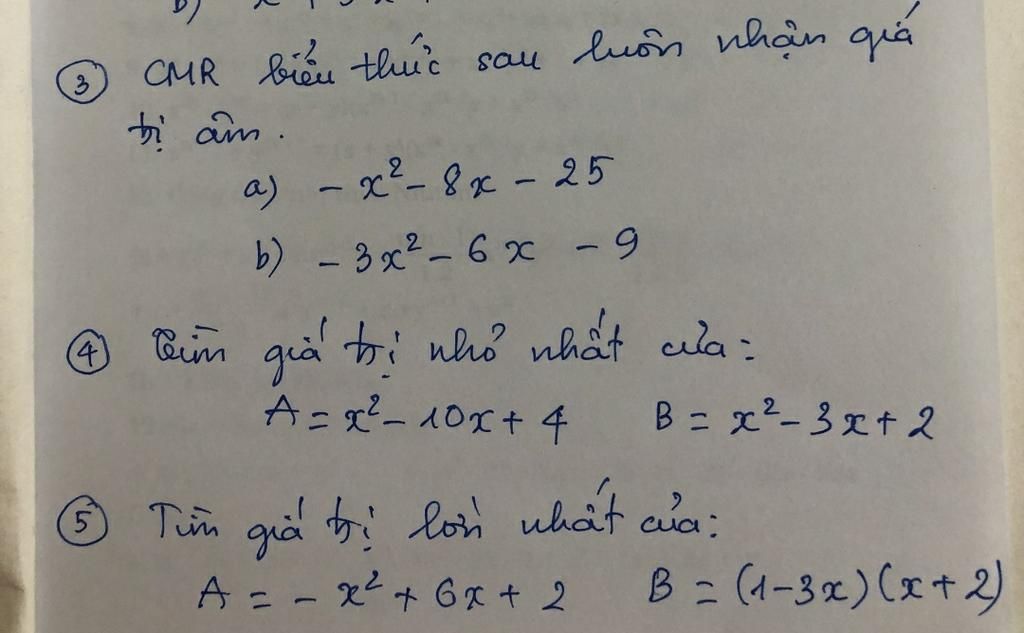 ③ CMR biểu thức sau luôn nhận giá
trị âm.
a) - x² - 8x - 25
b) - 3x² - 6x - 9
④ Tìm giá trị nhỏ nhất của:
A = x² - 10x + 4 B = x² - 3x + 2
⑤ Tìm giá trị lớn nhất của:
A = - x² + 6x + 2 B = (1-3x)(x+2)